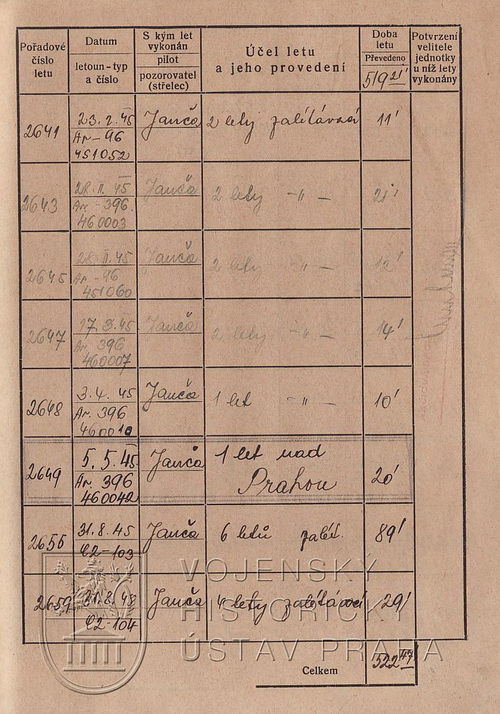 Pořadové číslo letu
Datum
letoun-typ a číslo
S kým let vykonán
pilot
pozorovatel (střelec)
Účel letu a jeho provedení
Doba letu
Převedeno
519 21'
Potvrzení velitele jednotky u níž lety vykonány
2641
23. 2. 45
Ar-96
451052
Janča
2 lety zalétávací
11'
2643
28. II. 45
Ar-396.
460003
Janča
2 lety -"-
21'
2645
28. II. 45
Ar-96
451060
Janča
2 lety -"-
12'
2647
17. 3. 45
Ar. 396
460007
Janča
2 lety -"-
14'
2648
3. 4. 45
Ar. 396
460010
Janča
1 let -"-
10'
2649
5. 5. 45
Ar. 396
460042
Janča
1 let nad
Prahou
20'
2655
31. 8. 45
C2-103
Janča
6 letů zalét.
89'
2659
C2-104
Janča
4 lety zalétávací
29'
VOJENSKÝ
HISTORICKÝ
ÚSTAV PRAHA
Celkem
522